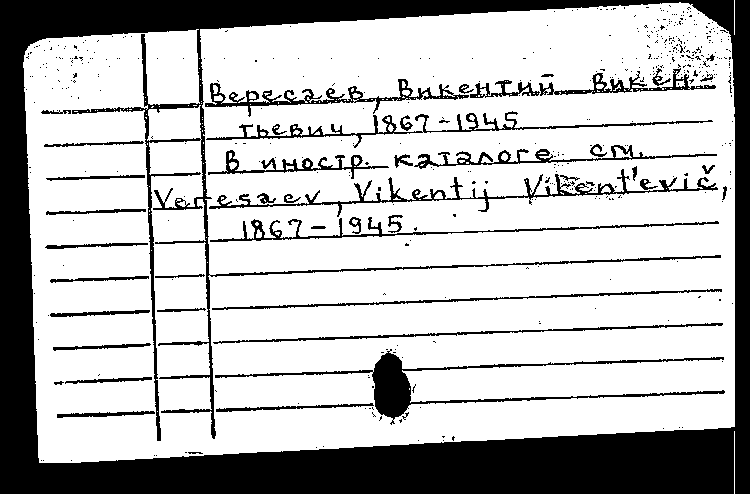 Вересаев, Викентий Викен-
тьевич, 1867-1945
В иностр. каталоге см.
Veresaev, Vikentij Vikent'evič,
1867-1945.